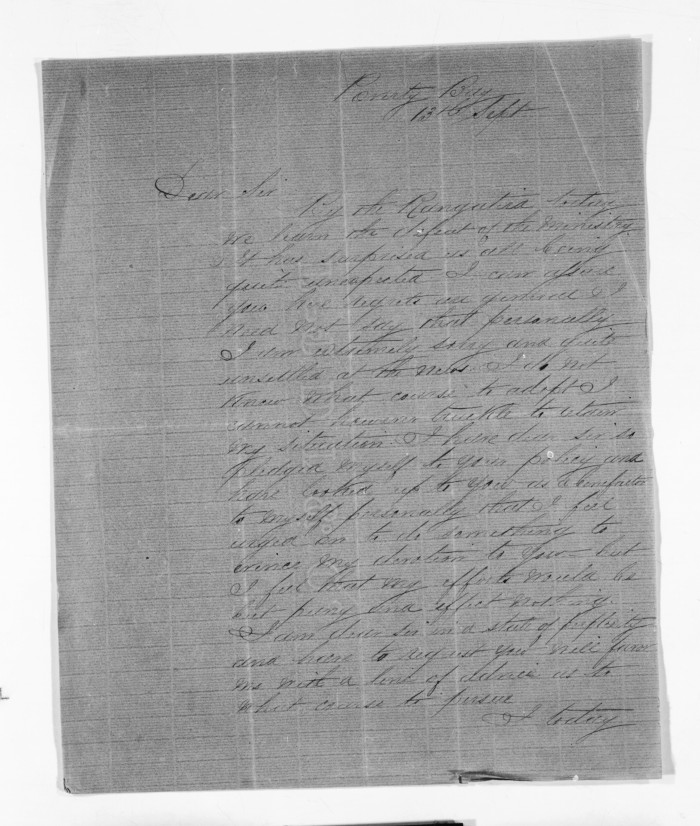 Poverty Bay
13th Sept
Dear Sir
By the Rangatira today
we learn the defeat of the Ministry
It has surprised us all being
quite unexpected I can assure
you here regrets are general & I
need not say that personally
I am extremely sorry and quite
unsettled at the news. I do not
know what course to adopt I
cannot however truckle to retain
my situation. I have dear sir so
pledged myself to your policy and
have looked up to you as a benefactor
to myself personally that I feel
urged on to do something to
evince my devotion to you but
I feel that my efforts would be
but puny and effect nothing.
I am dear Sir in a state of perplexity
and beg to request you will favor
me with a line of advice as to
what course to pursue
I today